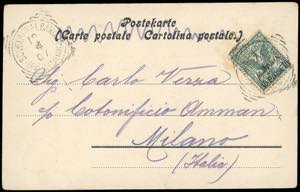 Postekarte
(Carte postale Cartolina postale.)
Sig Carlo Verza
p/ Cotonificio Amman
Milano
(Italia)